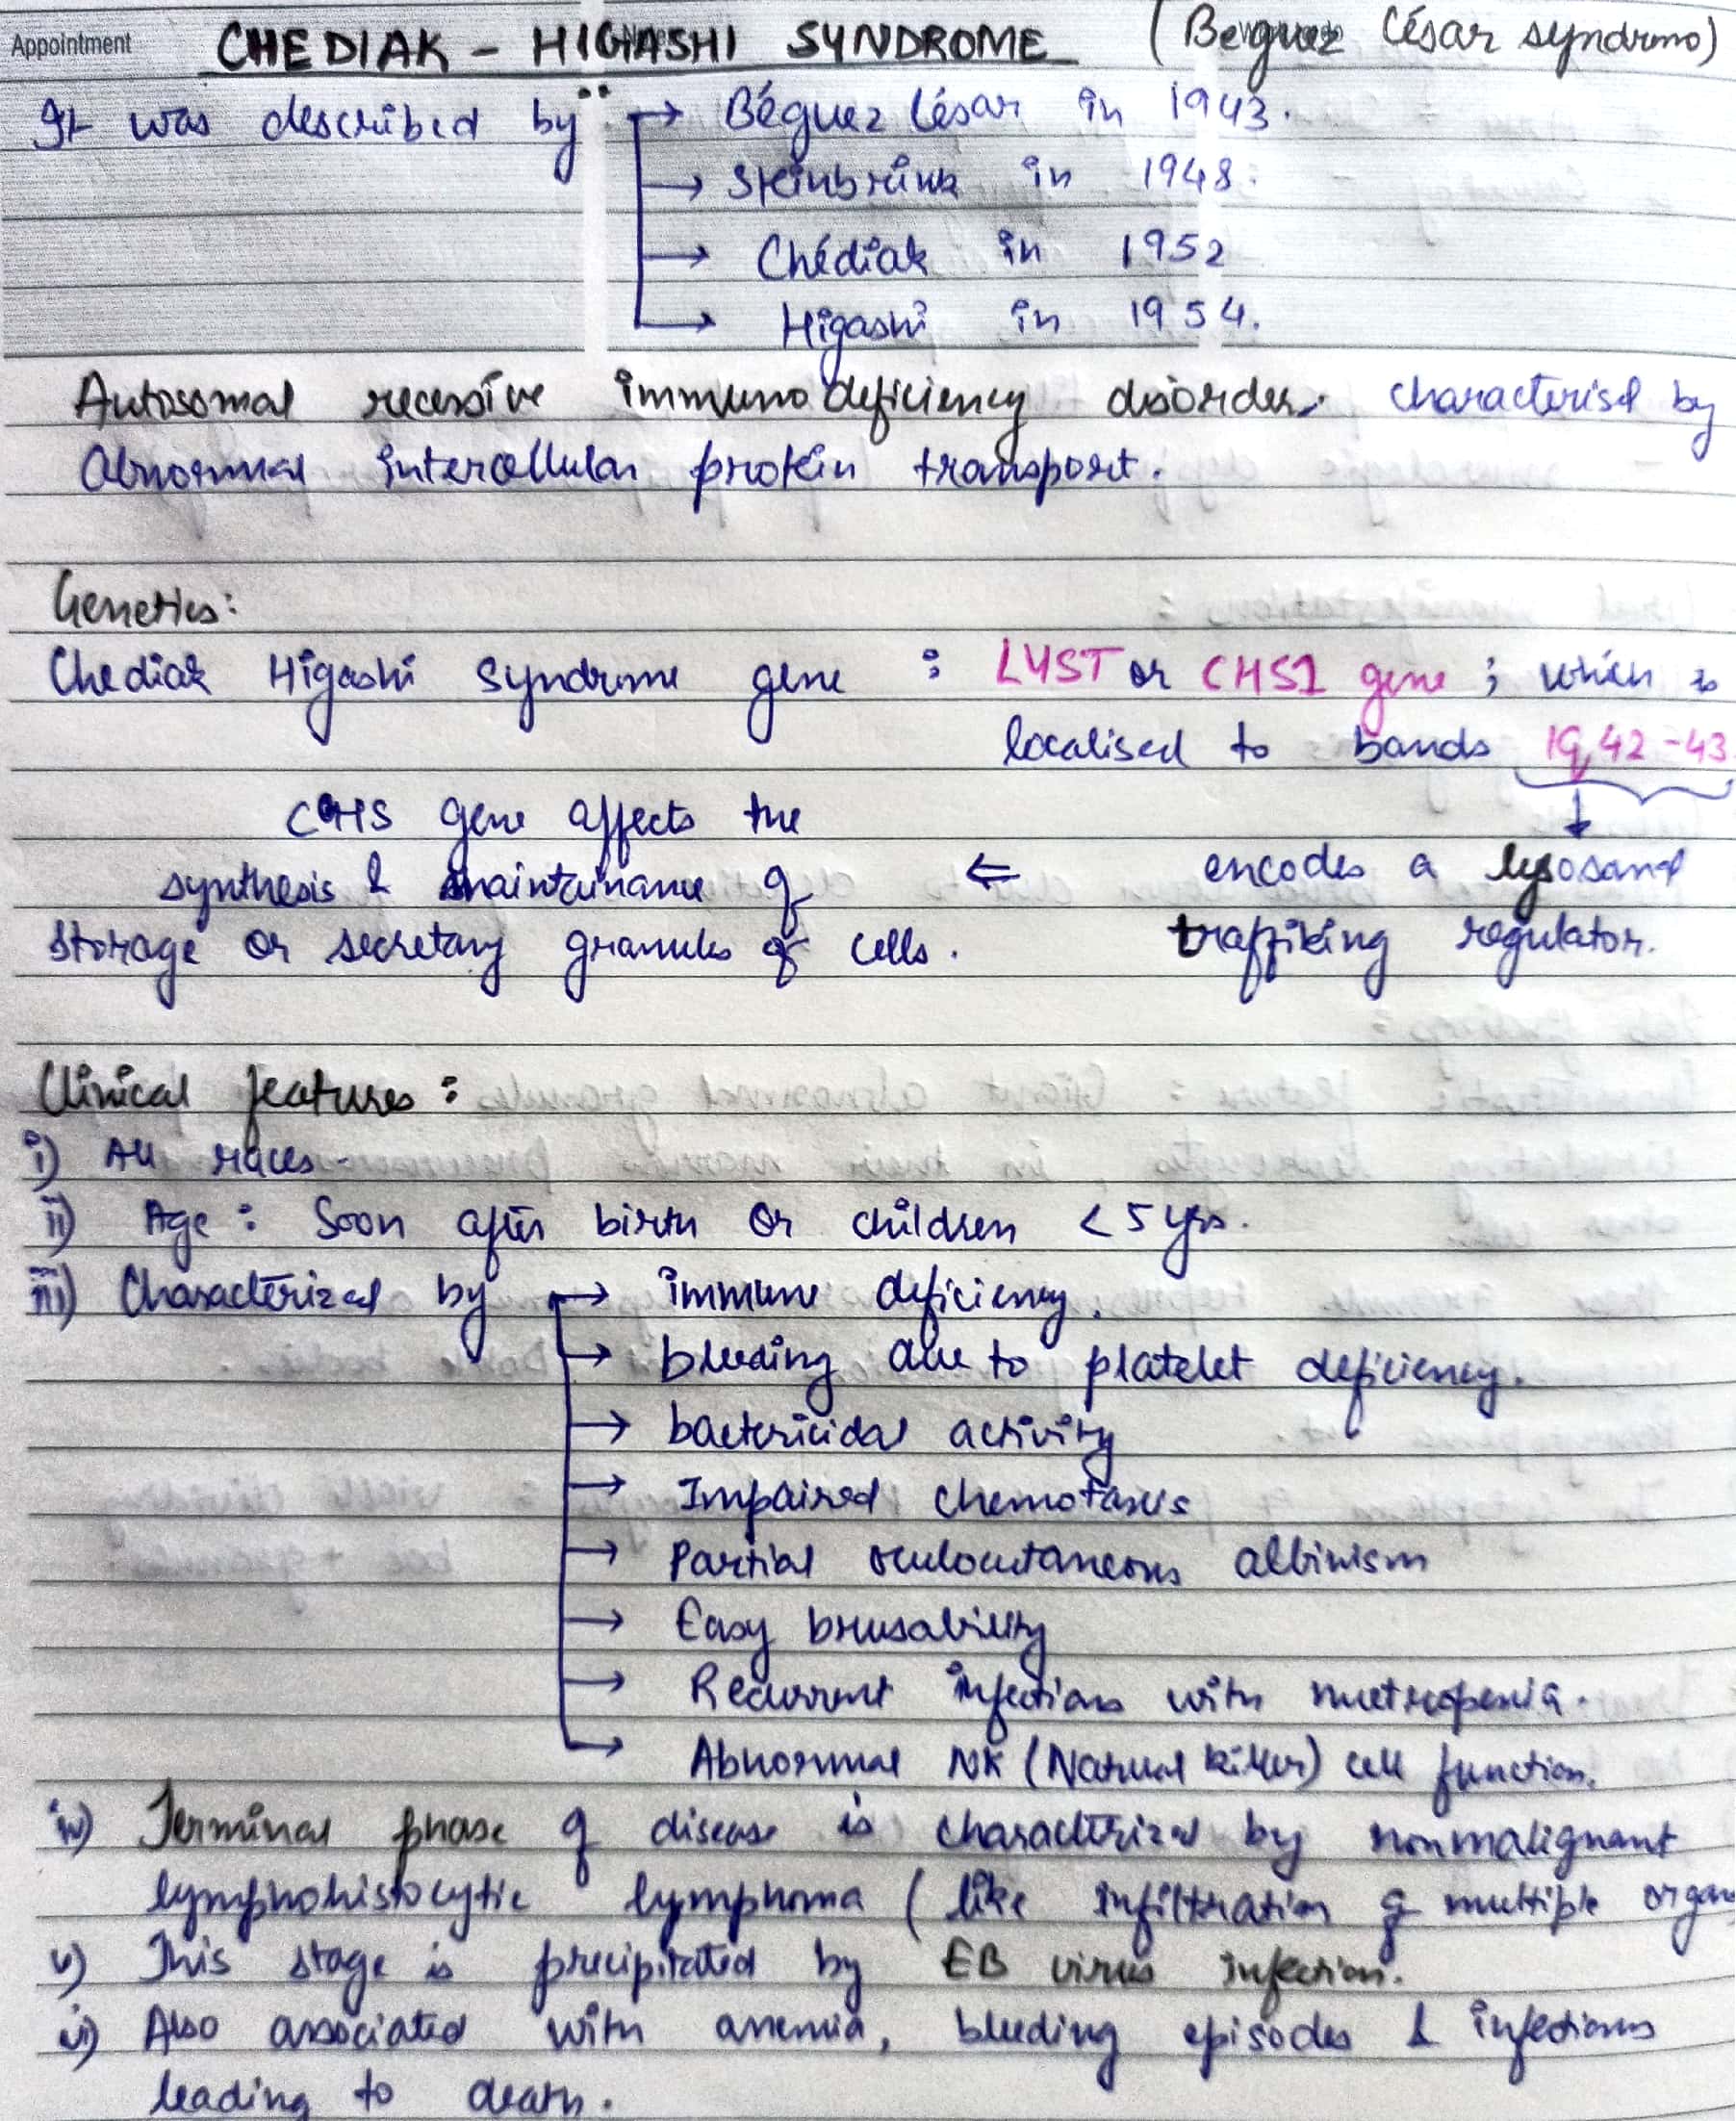 Appointment
CHEDIAK - HIGASHI SYNDROME (Béguez César syndrome)
It was described by → Béguez César in 1943.
→ Steinbrink in 1948.
→ Chédiak in 1952
→ Higashi in 1954.
Autosomal recessive immunodeficiency disorder. characterised by
Abnormal intercellular protein transport.
Genetics:
Chediak Higashi Syndrome gene : LYST or CHS1 gene ; which is
localised to bands 1q42-43
CHS gene affects the
synthesis & maintainance of ⇐ encodes a lysosomal
storage or secretary granules of cells. traffiking regulator.
Clinical features :
i) All races -
ii) Age : Soon after birth or children < 5 yrs.
iii) Characterized by → immune deficiency.
→ bleeding due to platelet deficiency.
→ bactericidal activity
→ Impaired chemotaxis
→ Partial oculocutaneous albinism
→ Easy brusability
→ Recurrent infections with nuetropenia.
→ Abnormal NK (Natural killer) cell function.
iv) Terminal phase of disease is characterized by nonmalignant
lymphohistocytic lymphoma ( like infiltration of multiple organ
v) This stage is precipitated by EB virus infection.
vi) Also associated with anemia, bleeding episodes & infections
leading to death.